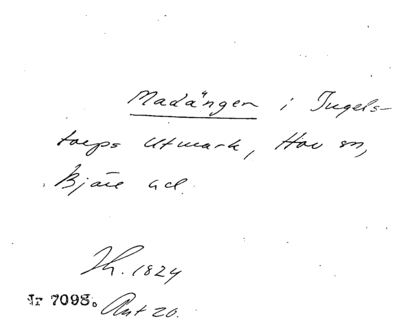 Madängen i Ingels-
torps Utmark, Hov sn,
Bjäre hd.
Jh. 1824
Jr 7098. Akt 20.